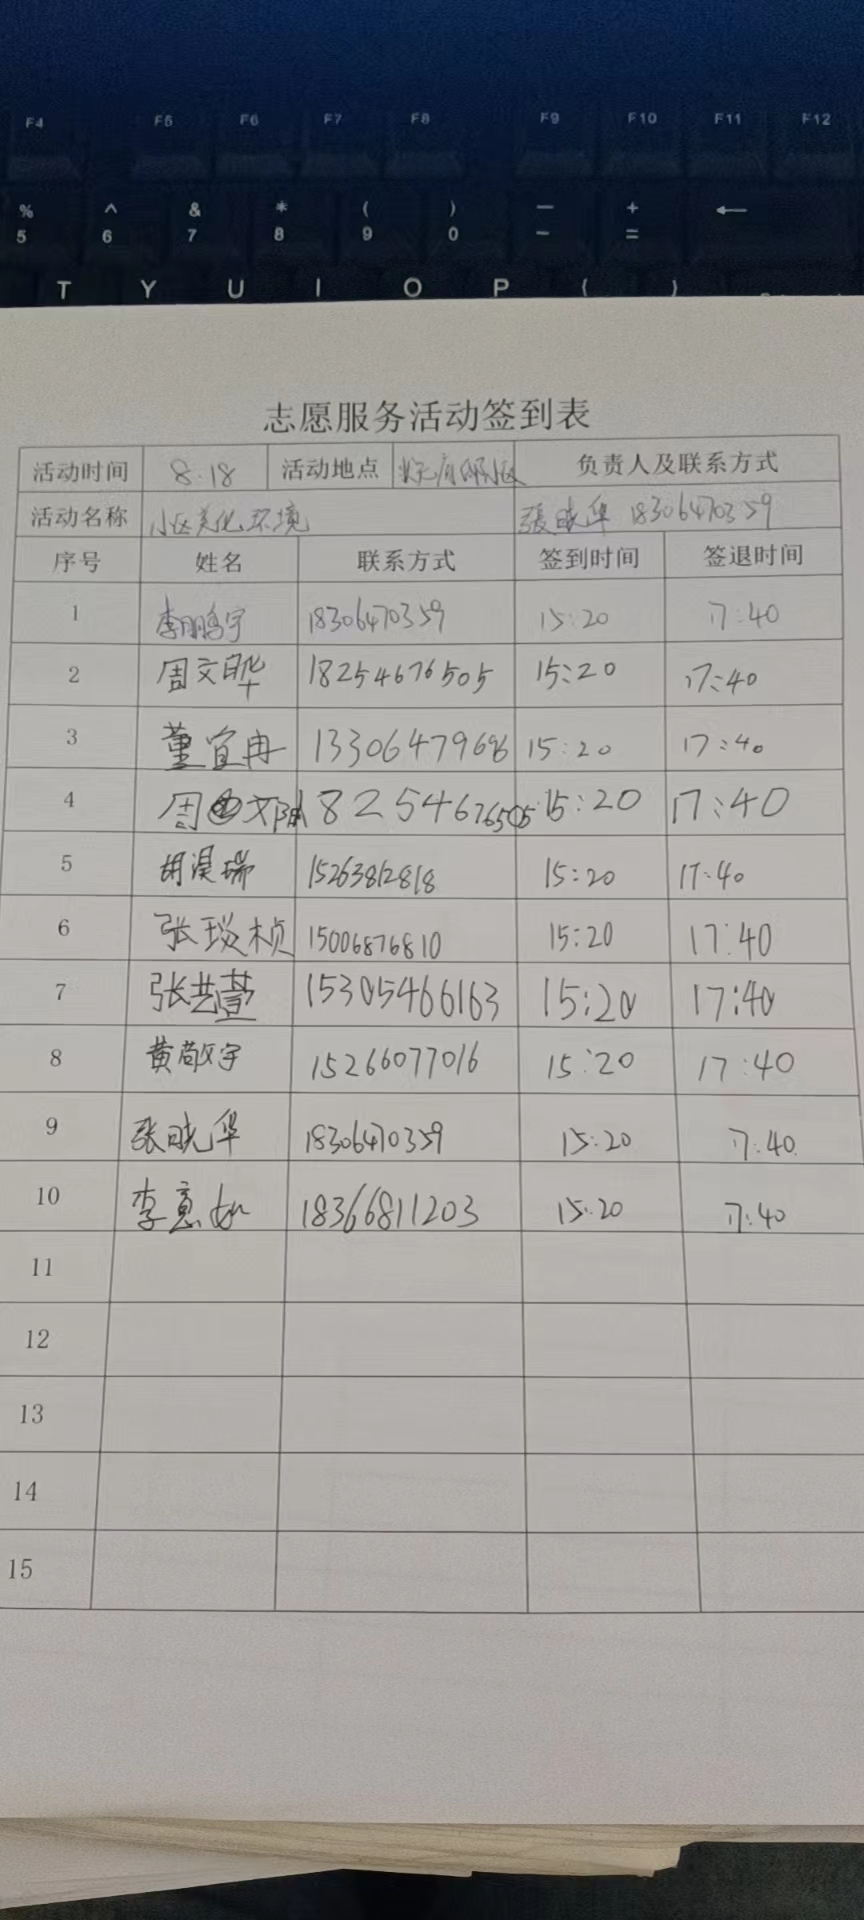 F4 F5 F6 F7 F8 F9 F10 F11 F12
% ^ & * ( ) — + ←
5 6 7 8 9 0 - =
T Y U I O P ( )
志愿服务活动签到表
活动时间 8.18 活动地点 负责人及联系方式
活动名称 小区美化环境 张晓华 18306470359
序号 姓名 联系方式 签到时间 签退时间
1 李鹏宇 18306470359 15:20 17:40
2 周文晔 18254676505 15:20 17:40
3 董宜冉 13306479696 15:20 17:40
4 周文 18254676505 15:20 17:40
5 胡滉瑞 15263812818 15:20 17:40
6 张琰桢 15006876810 15:20 17:40
7 张芸萱 15305466163 15:20 17:40
8 黄敬宇 15266077016 15:20 17:40
9 张晓华 18306470359 15:20 17:40
10 李意如 18366811203 15:20 17:40
11
12
13
14
15